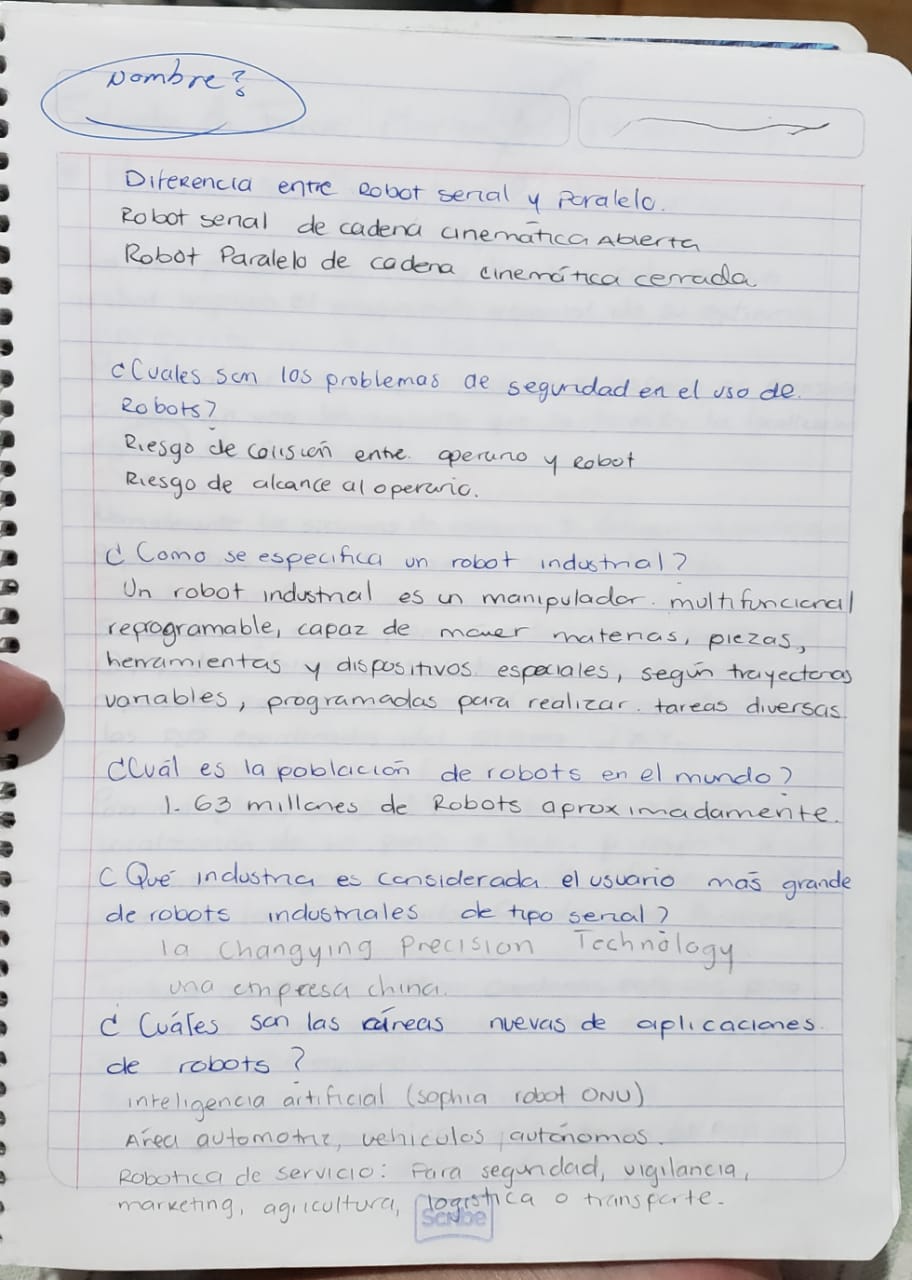 Nombre?
Diferencia entre Robot serial y Paralelo.
Robot serial de cadena cinematica Abierta
Robot Paralelo de cadena cinemática cerrada
¿Cuales son los problemas de seguridad en el uso de
Robots?
Riesgo de colisión entre operario y Robot
Riesgo de alcance al operario.
¿ Como se especifica un robot industrial?
Un robot industrial es un manipulador multifuncional
reprogramable, capaz de mover materias, piezas,
herramientas y dispositivos especiales, según trayectorias
variables, programadas para realizar tareas diversas
¿Cuál es la población de robots en el mundo?
1.63 millones de Robots aproximadamente.
¿Qué industria es considerada el usuario más grande
de robots industriales de tipo serial?
la Changying Precision Technology
una empresa china.
¿ Cuáles son las áreas nuevas de aplicaciones
de robots?
inteligencia artificial (sophia robot ONU)
Área automotriz, vehiculos autónomos.
Robotica de servicio: Para seguridad, vigilancia,
marketing, agricultura, logística o transporte.
Scribe